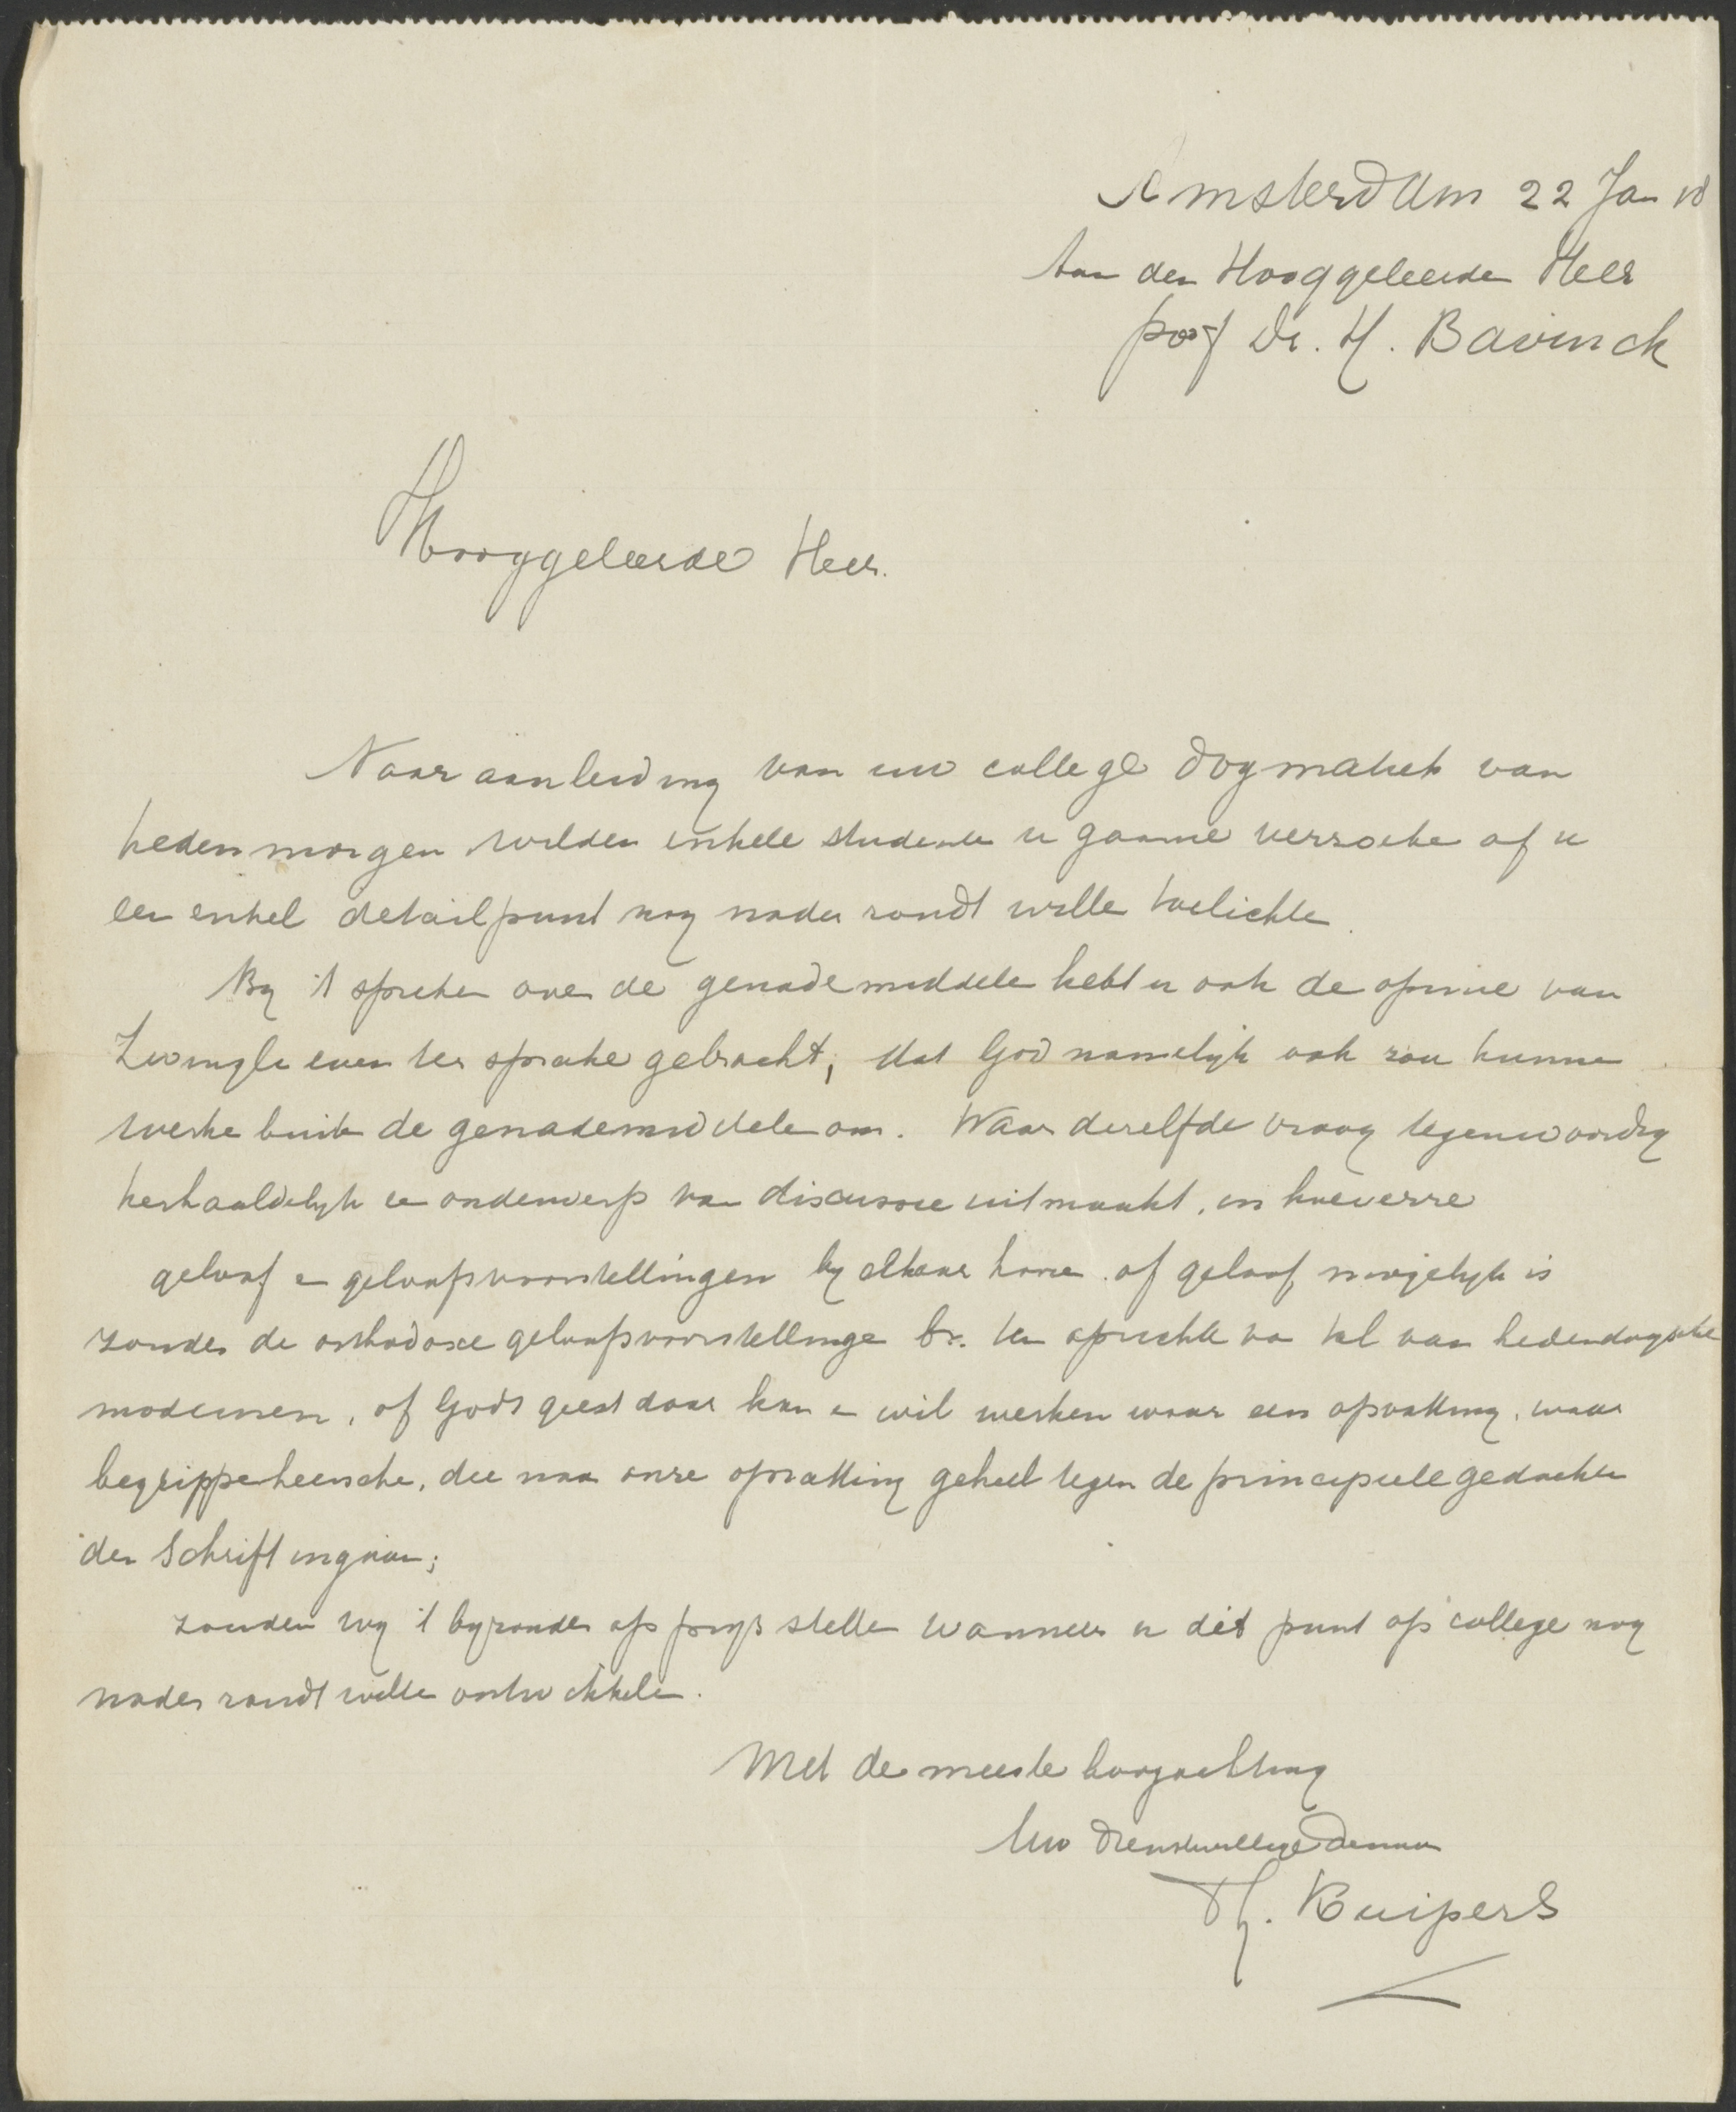 Amsterdam 22 Jan 18
Aan den Hooggeleerden Heer
prof Dr. H. Bavinck
Hooggeleerde Heer.
Naar aanleiding van uw college dogmatiek van
hedenmorgen wilden enkele studenten u gaarne verzoeken of u
een enkel detailpunt nog nader zoudt willen toelichten.
By 't spreken over de genademiddelen hebt u ook de opinie van
Zwingli even ter sprake gebracht, dat God namelijk ook zou kunnen
werken buiten de genademiddelen om. Waar dezelfde vraag tegenwoordig
herhaaldelyk een onderwerp van discussie uitmaakt, in hoeverre
geloof en geloofsvoorstellingen by elkaar horen of geloof mogelyk is
zonder de orthodoxe geloofsvoorstellingen bv. ten opzichte van tal van hedendaagsche
modernen, of Gods geest daar kan en wil werken waar een opvatting, waar
begrippen heerschen, die naar onze opvatting geheel tegen de principieele gedachten
der Schrift ingaan;
zouden wy 't byzonder op prys stellen wanneer u dit punt op college nog
nader zoudt willen ontwikkelen.
Met de meeste hoogachting
Uw dienstwillige dienaar
Th. Kuipers